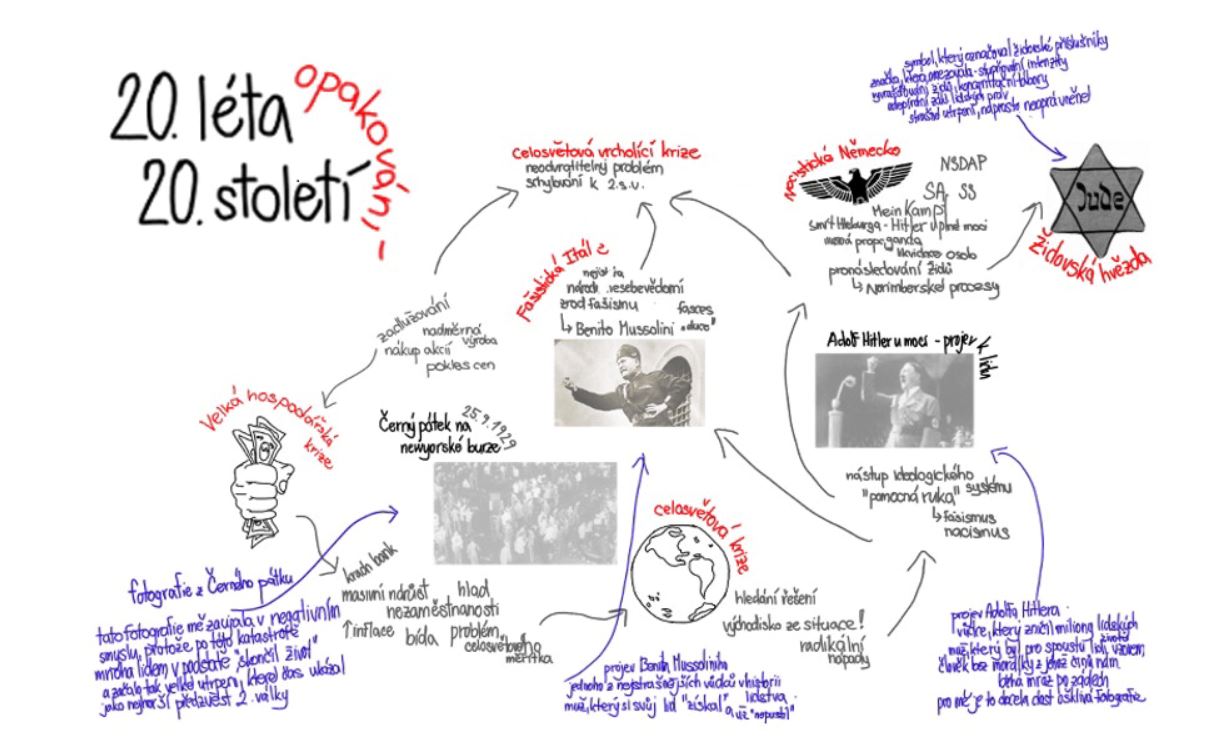 20. léta
20. století
opakování -
celosvětová vrcholící krize
neodvratitelný problém
schylování k 2.s.v.
Nacistická Německo
NSDAP
SA, SS
Mein Kampf
smrt - Hitler úplné moci
propaganda
likvidace osob
pronásledování židů
↳ Norimberské procesy
symbol, který označoval židovské příslušníky
značka, která omezovala - stupňování intenzity
vyvražďování židů, koncentrační tábory
odepírání lidských práv
strašné utrpení, naprosto neoprávněné!
Jude
Židovská hvězda
Fašistická
národ. sebevědomí
zrod fašismu
fasces
↳ Benito Mussolini "duce"
zadlužování
nadměrná výroba
nákup akcií
pokles cen
Velká hospodářská krize
Černý pátek na
newyorské burze
25.9.1929
Adolf Hitler u moci - projev k lidu
nástup ideologického
"pomocná ruka" systému
↳ fašismus
nacismus
celosvětová krize
hledání řešení
východisko ze situace!
radikální
nápady
krach bank
masivní nárůst
nezaměstnanosti
hlad
↑ inflace
bída
problém
celosvětového
měřítka
fotografie z Černého pátku
tato fotografie mě zaujala v negativním
smyslu, protože po této katastrofě
mnoha lidem v podstatě "skončil život"
a začalo tak velké utrpení, které čas ukázal
jako nejhorší předzvěst 2. války
projev Benita Mussoliniho
jednoho z nejstrašnějších vůdců v historii
muž, který si svůj lid "získal" a už "nepustil"
lidstva
projev Adolfa Hitlera
vůdce, který zničil miliony lidských
životů
muž, který byl pro spoustu lidí vzorem
člověk bez morálky z jehož činů nám
běhá mráz po zádech
pro mě je to docela dost ošklivá fotografie